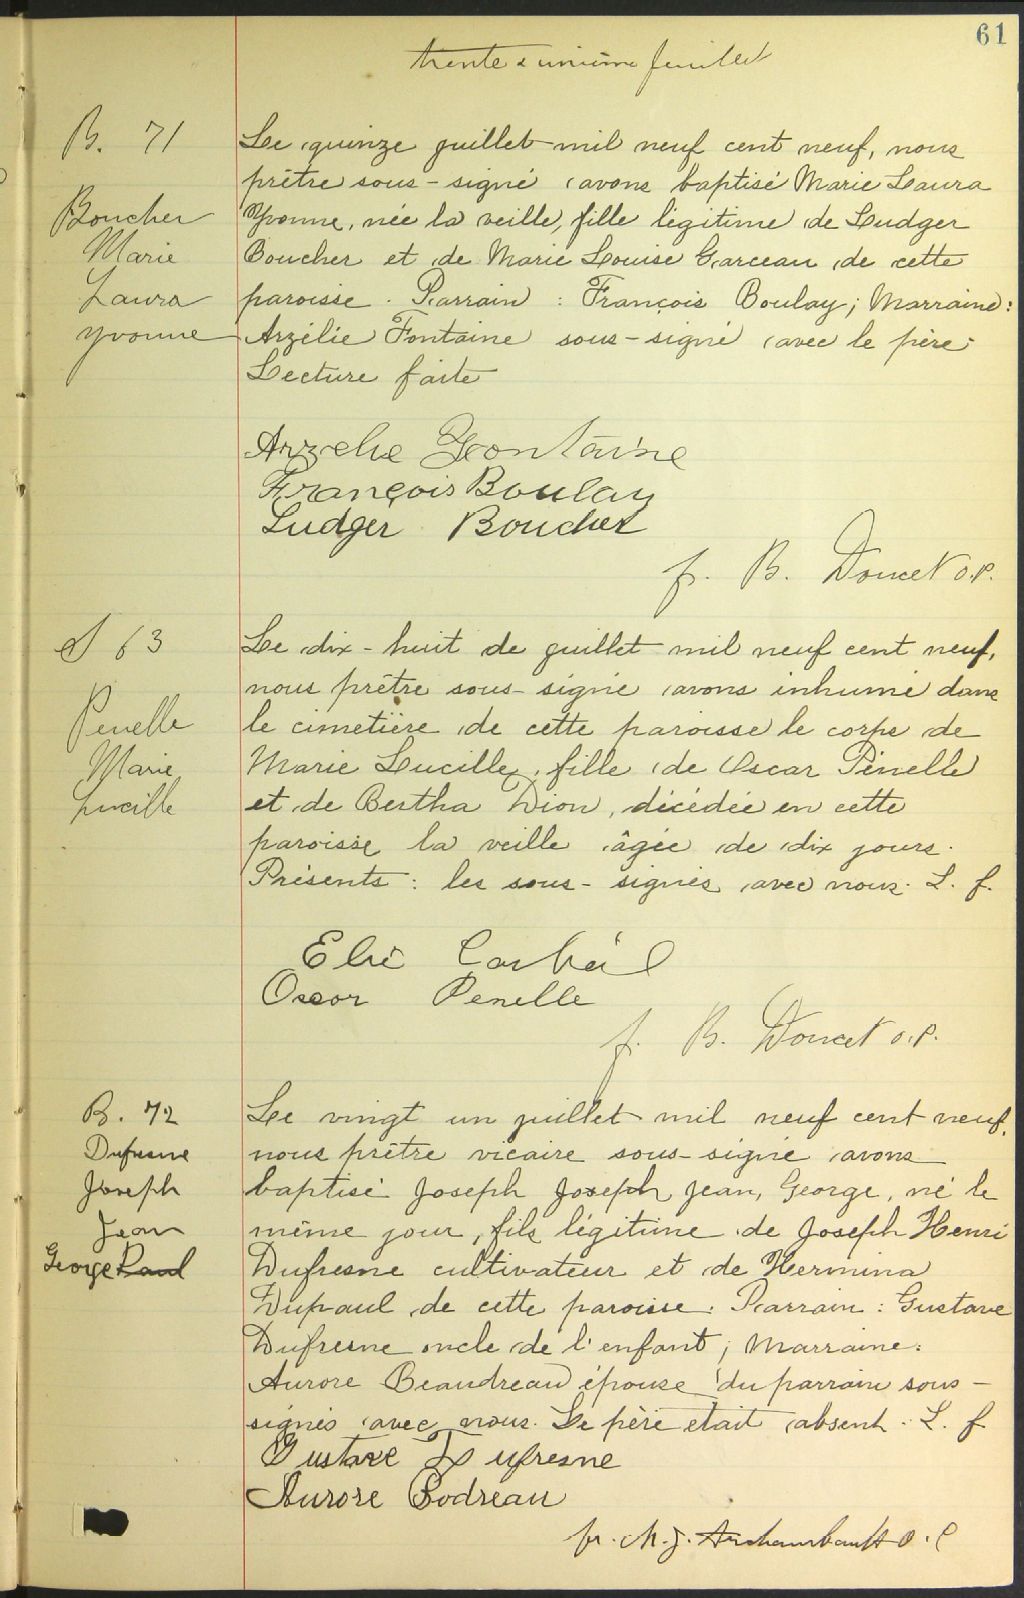 61
trente & unième feuillet
B. 71
Boucher
Marie
Laura
Yvonne
Le quinze juillet mil neuf cent neuf, nous
prêtre sous-signé avons baptisé Marie Laura
Yvonne, née la veille, fille légitime de Ludger
Boucher et de Marie Louise Garceau de cette
paroisse. Parrain : François Boulay; Marraine:
Arzélie Fontaine sous-signé avec le père.
Lecture faite
Arzelie Fontaine
François Boulay
Ludger Boucher
fr. B. Doucet O.P.
S 63
Penelle
Marie
Lucille
Le dix-huit de juillet mil neuf cent neuf,
nous prêtre sous-signé avons inhumé dans
le cimetière de cette paroisse le corps de
Marie Lucille, fille de Oscar Pénelle
et de Bertha Dion, décédée en cette
paroisse la veille âgée de dix jours.
Présents : les sous-signés avec nous. L. f.
Elie Corbeil
Oscar Penelle
f. B. Doucet O.P.
B. 72
Dufresne
Joseph
Jean
George Paul
Le vingt un juillet mil neuf cent neuf,
nous prêtre vicaire sous-signé avons
baptisé Joseph Joseph Jean, George, né le
même jour, fils légitime de Joseph Henri
Dufresne cultivateur et de Hermina
Dupaul de cette paroisse. Parrain : Gustave
Dufresne oncle de l'enfant; Marraine:
Aurore Beaudreau épouse du parrain sous-
signés avec nous. Le père etait absent. L. f
Gustave Dufresne
Aurore Bodreau
fr. M. J. Archambault O.P